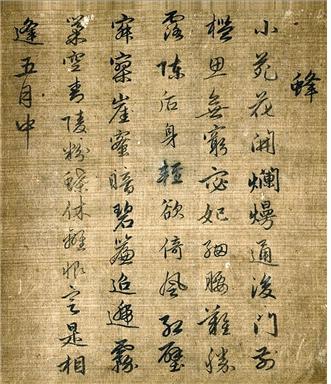 蜂
小苑花開爛熳通後門前
檻思無窮宓妃細腰難勝
露陳后身輕欲倚風紅壁
寂寞崖蜜暗碧簾迢遞霧
巢空青陵粉蝶休離恨定是相
逢五月中